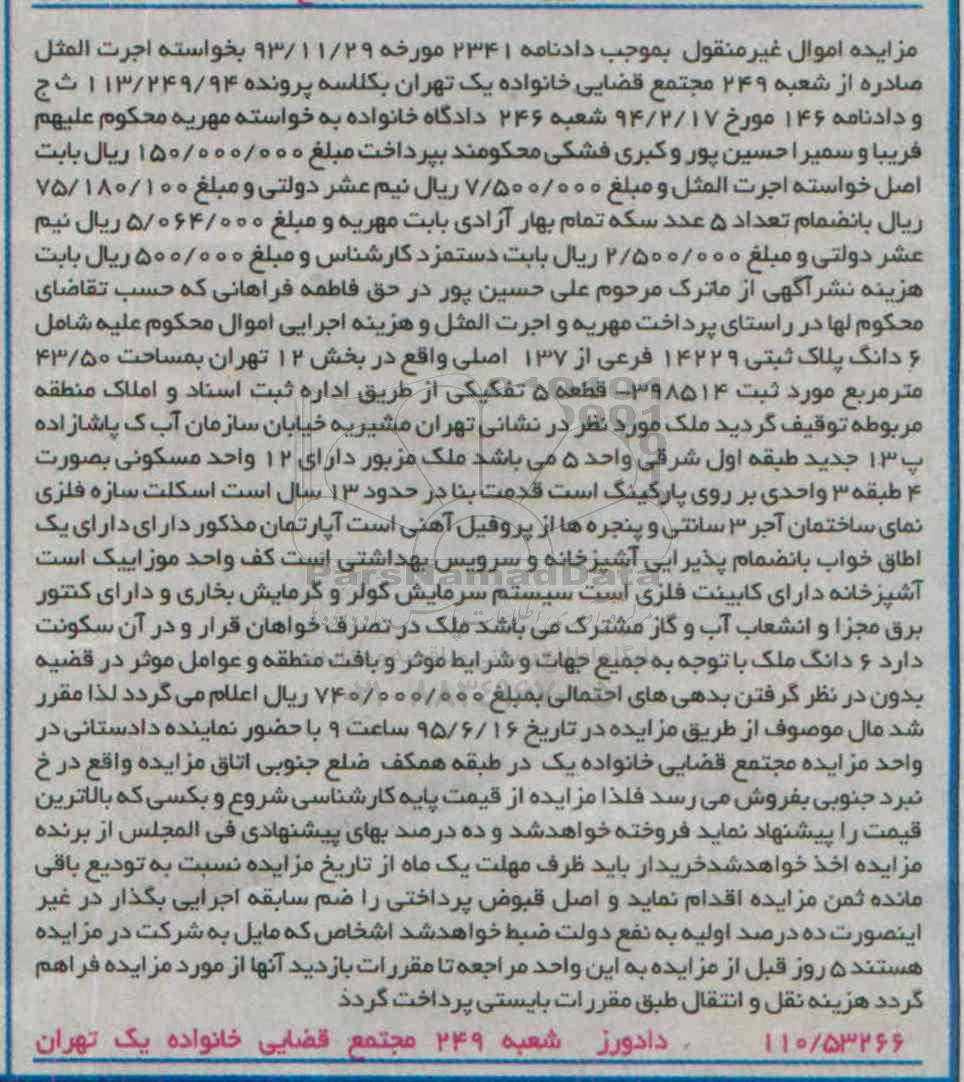 مزایده اموال غیرمنقول بموجب دادنامه ۲۳۴۱ مورخه ۹۳/۱۱/۲۹ بخواسته اجرت المثل
صادره از شعبه ۲۴۹ مجتمع قضایی خانواده یک تهران بکلاسه پرونده ۱۱۳/۲۴۹/۹۴ ث ج
و دادنامه ۱۴۶ مورخ ۹۴/۲/۱۷ شعبه ۲۴۶ دادگاه خانواده به خواسته مهریه محکوم علیهم
فریبا و سمیرا حسین پور و کبری فشکی محکومند بپرداخت مبلغ ۱۵۰/۰۰۰/۰۰۰ ریال بابت
اصل خواسته اجرت المثل و مبلغ ۷/۵۰۰/۰۰۰ ریال نیم عشر دولتی و مبلغ ۷۵/۱۸۰/۱۰۰
ریال بانضمام تعداد ۵ عدد سکه تمام بهار آزادی بابت مهریه و مبلغ ۵/۰۶۴/۰۰۰ ریال نیم
عشر دولتی و مبلغ ۲/۵۰۰/۰۰۰ ریال بابت دستمزد کارشناس و مبلغ ۵۰۰/۰۰۰ ریال بابت
هزینه نشرآگهی از ماترک مرحوم علی حسین پور در حق فاطمه فراهانی که حسب تقاضای
محکوم لها در راستای پرداخت مهریه و اجرت المثل و هزینه اجرایی اموال محکوم علیه شامل
۶ دانگ پلاک ثبتی ۱۴۲۲۹ فرعی از ۱۳۷ اصلی واقع در بخش ۱۲ تهران بمساحت ۴۳/۵۰
مترمربع مورد ثبت ۳۹۸۵۱۴- قطعه ۵ تفکیکی از طریق اداره ثبت اسناد و املاک منطقه
مربوطه توقیف گردید ملک مورد نظر در نشانی تهران مشیریه خیابان سازمان آب ک پاشازاده
پ ۱۳ جدید طبقه اول شرقی واحد ۵ می باشد ملک مزبور دارای ۱۲ واحد مسکونی بصورت
۴ طبقه ۳ واحدی بر روی پارکینگ است قدمت بنا در حدود ۱۳ سال است اسکلت سازه فلزی
نمای ساختمان آجر ۳ سانتی و پنجره ها از پروفیل آهنی است آپارتمان مذکور دارای دارای یک
اطاق خواب بانضمام پذیرایی آشپزخانه و سرویس بهداشتی است کف واحد موزاییک است
ParsNamadData
آشپزخانه دارای کابینت فلزی است سیستم سرمایش کولر و گرمایش بخاری و دارای کنتور
برق مجزا و انشعاب آب و گاز مشترک می باشد ملک در تصرف خواهان قرار و در آن سکونت
دارد ۶ دانگ ملک با توجه به جمیع جهات و شرایط موثر و بافت منطقه و عوامل موثر در قضیه
بدون در نظر گرفتن بدهی های احتمالی بمبلغ ۷۴۰/۰۰۰/۰۰۰ ریال اعلام می گردد لذا مقرر
شد مال موصوف از طریق مزایده در تاریخ ۹۵/۶/۱۶ ساعت ۹ با حضور نماینده دادستانی در
واحد مزایده مجتمع قضایی خانواده یک در طبقه همکف ضلع جنوبی اتاق مزایده واقع در خ
نبرد جنوبی بفروش می رسد فلذا مزایده از قیمت پایه کارشناسی شروع و بکسی که بالاترین
قیمت را پیشنهاد نماید فروخته خواهدشد و ده درصد بهای پیشنهادی فی المجلس از برنده
مزایده اخذ خواهدشدخریدار باید ظرف مهلت یک ماه از تاریخ مزایده نسبت به تودیع باقی
مانده ثمن مزایده اقدام نماید و اصل قبوض پرداختی را ضم سابقه اجرایی بگذار در غیر
اینصورت ده درصد اولیه به نفع دولت ضبط خواهدشد اشخاص که مایل به شرکت در مزایده
هستند ۵ روز قبل از مزایده به این واحد مراجعه تا مقررات بازدید آنها از مورد مزایده فراهم
گردد هزینه نقل و انتقال طبق مقررات بایستی پرداخت گردد
۱۱۰/۵۳۲۶۶ دادورز شعبه ۲۴۹ مجتمع قضایی خانواده یک تهران